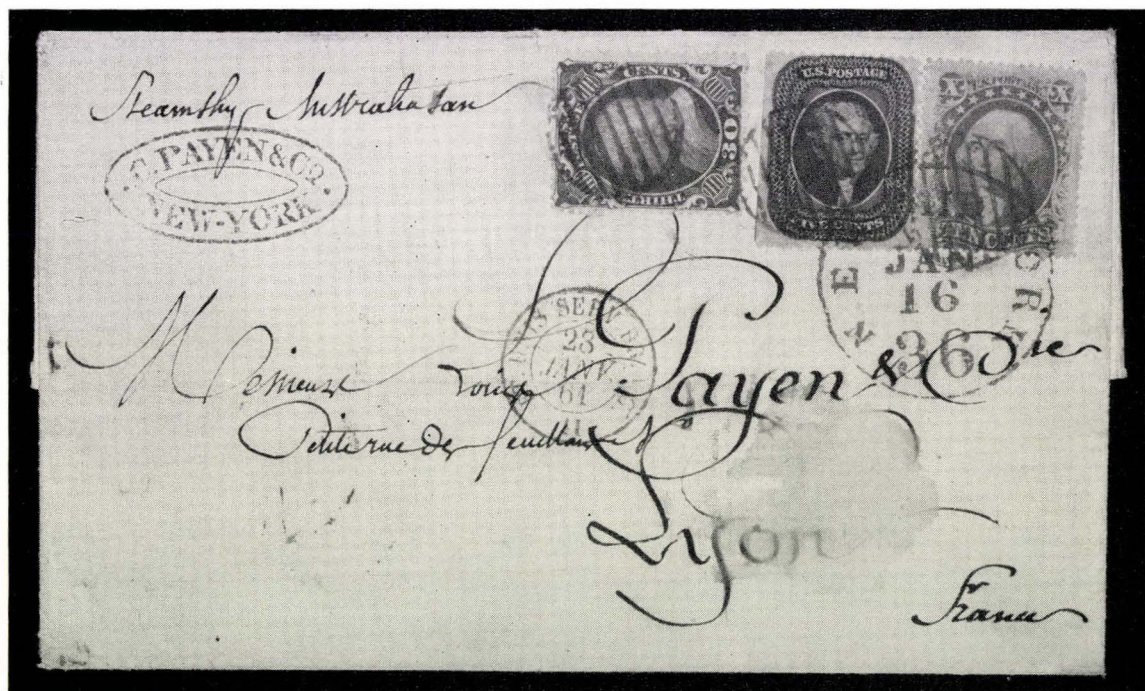 Steamship Australasian
C. PAYEN & CO.
NEW-YORK
CENTS
30
THIRTY
U.S. POSTAGE
FIVE CENTS
X U.S. POSTAGE X
TEN CENTS
NEW YORK
JAN
16
36
28
JANV
61
Messieurs Louis Payen & Cie
Petite rue des feuillans
Lyon
France